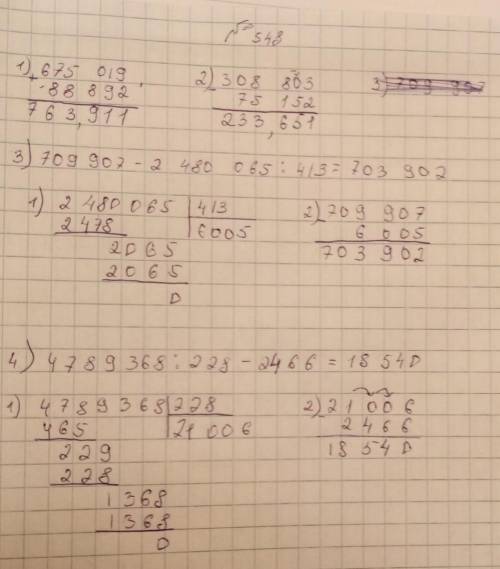 № 548
1) 675 019 2) 308 803 3) 709 907
+ 88 892 - 75 152
763,911 233,651
3) 709 907 - 2 480 065 : 413 = 703 902
1) 2 480 065 | 413 2) 709 907
2 478 6005 - 6 005
2065 703 902
2065
0
4) 4789368 : 228 - 2466 = 18 540
1) 4789368 | 228 2) 21 006
465 21 006 - 2466
229 18 540
228
1368
1368
0